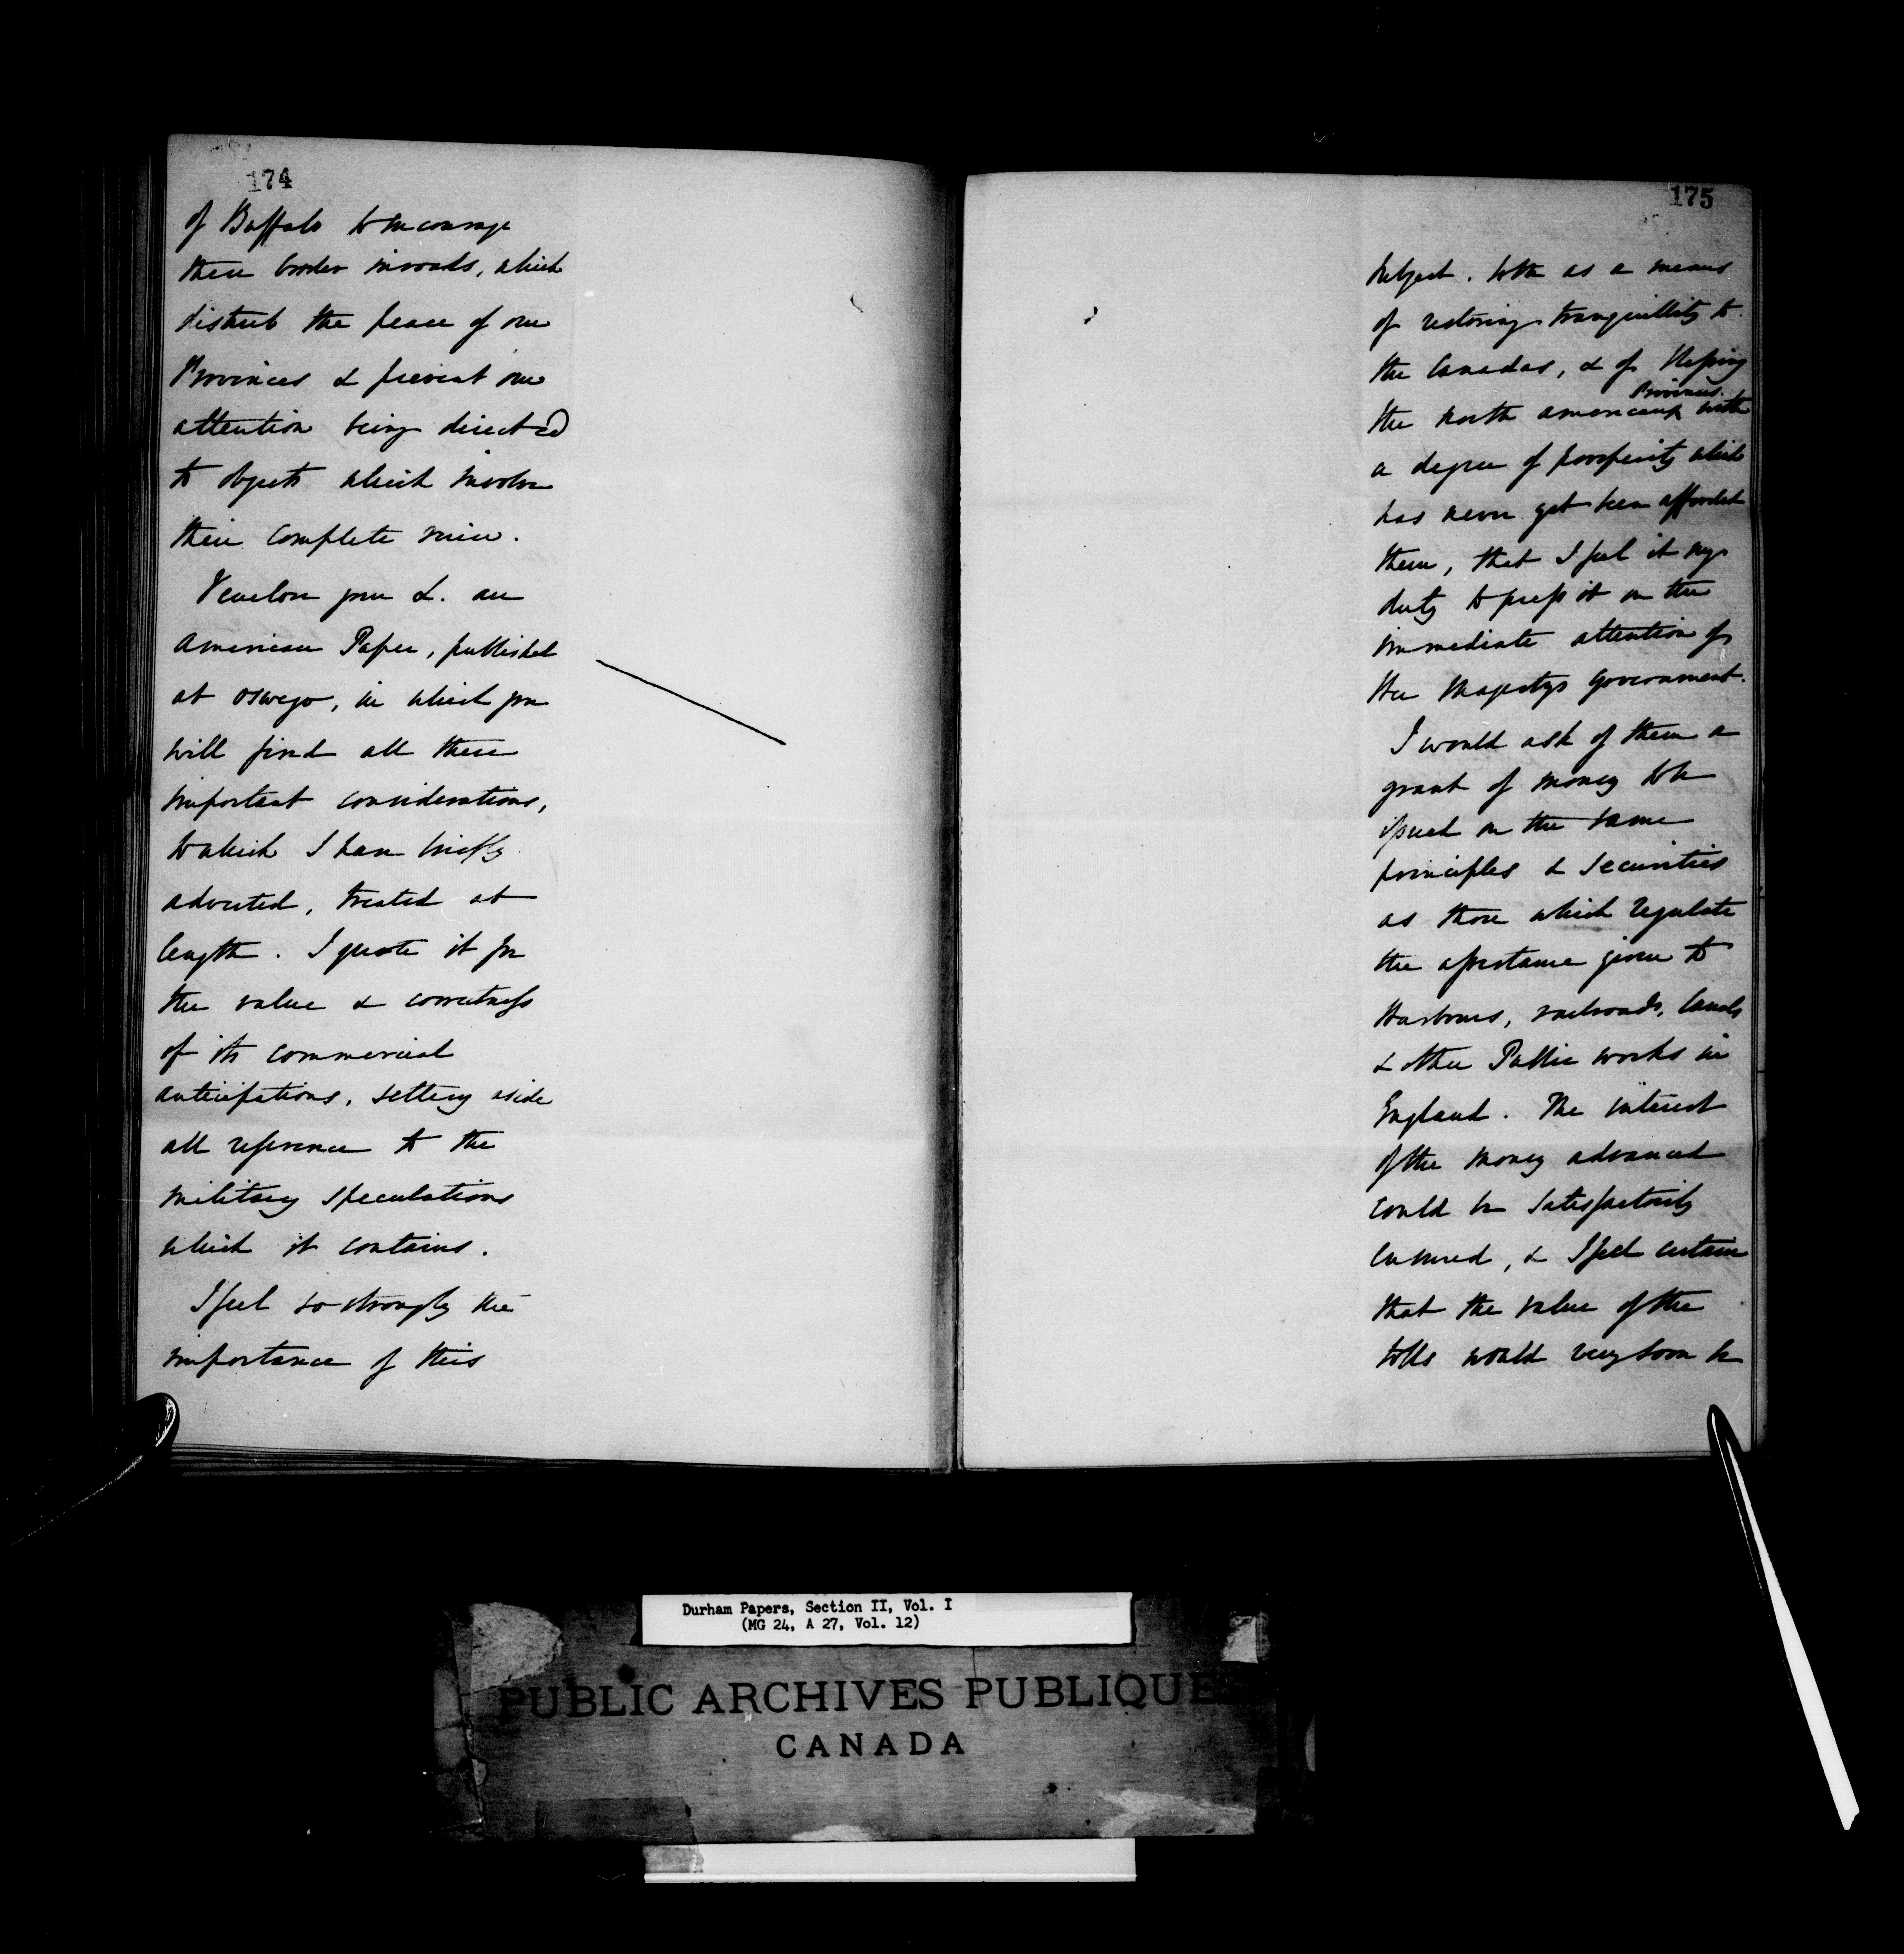 174
of Buffalo to encourage
these border inroads, which
disturb the peace of our
Provinces & prevent our
attention being directed
to objects which involve
their complete ruin.
I enclose your L. an
American Paper, published
at Oswego, in which you
will find all these
important considerations,
to which I have briefly
adverted, treated at
length. I quote it for
the value & correctness
of its commercial
anticipations, setting aside
all reference to the
military speculations
which it contains.
I feel so strongly the
importance of this
175
subject, both as a means
of restoring tranquillity to
the Canadas, & of blessing
Provinces
the North American with
a degree of prosperity which
has never yet been afforded
them, that I feel it my
duty to press it on the
immediate attention of
Her Majestys Government.
I would ask of them a
grant of money to be
issued on the same
principles & securities
as those which regulate
the assistance given to
Harbours, railroads, Canals
& other Public works in
England. The interest
of the money advanced
could be satisfactorily
ensured, & I feel certain
that the value of the
tolls would very soon be
Durham Papers, Section II, Vol. I
(MG 24, A 27, Vol. 12)
PUBLIC ARCHIVES PUBLIQUES
CANADA